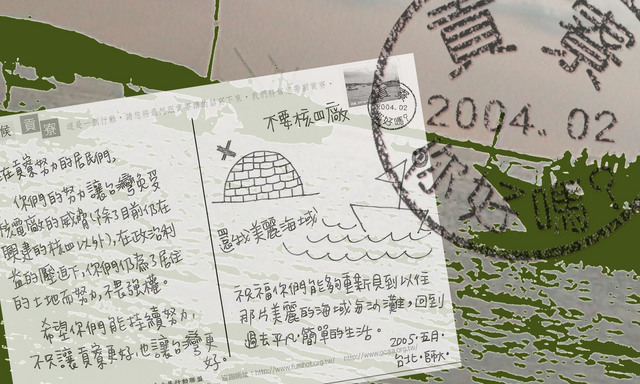 貢寮
2004.02
你好嗎?
候 貢寮
不要核四廠
在貢寮努力的居民們,
你們的努力讓台灣免受
核電廠的威脅(除了目前仍在
興建的核四以外),在政治利
益的壓迫下,你們仍為了居住
的土地而努力,不畏強權。
希望你們能持續努力,
不只讓貢寮更好,也讓台灣更
好。
還我美麗海域
祝福你們能夠重新見到以往
那片美麗的海域與沙灘,回到
過去平凡、簡單的生活。
2005.五月.
台北.師大.